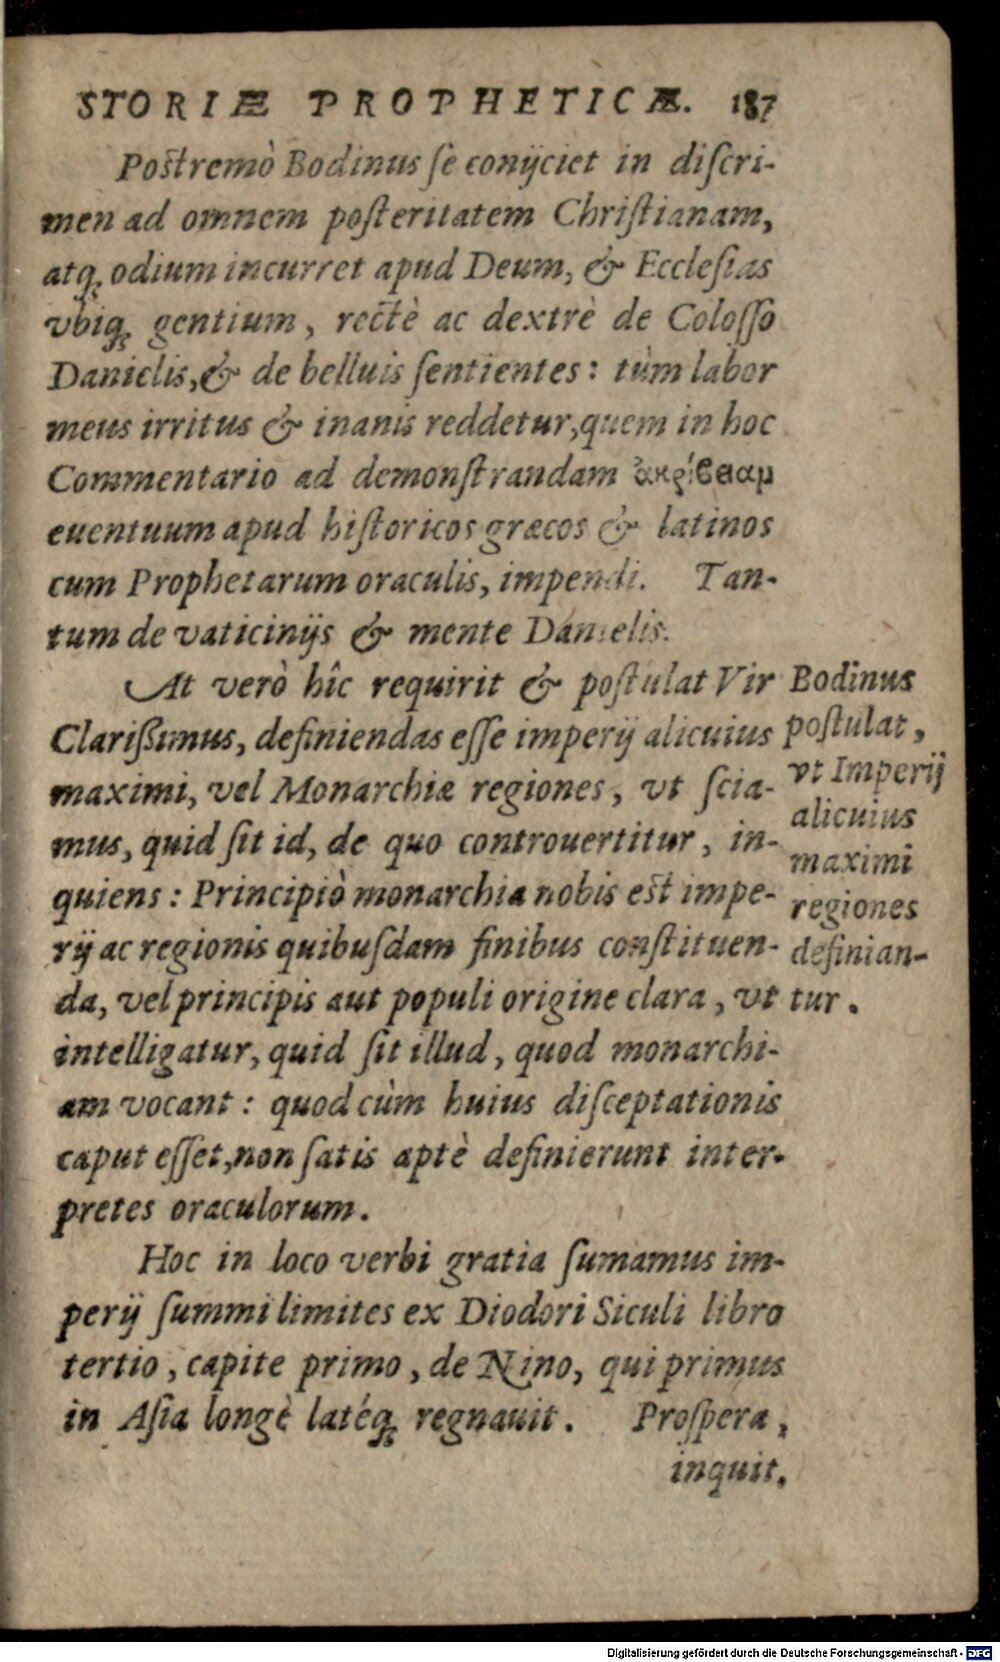 STORIÆ PROPHETICÆ. 187
Postremò Bodinus ſe conijciet in diſcri-
men ad omnem poſteritatem Chriſtianam,
atq́; odium incurret apud Deum, & Eccleſias
vbiq́; gentium, rectè ac dextrè de Coloſſo
Danielis, & de belluis ſentientes: tùm labor
meus irritus & inanis reddetur, quem in hoc
Commentario ad demonſtrandam ἀκρίβειαμ
euentuum apud hiſtoricos græcos & latinos
cum Prophetarum oraculis, impendi. Tan-
tum de vaticinijs & mente Danielis.
At verò hîc requirit & poſtulat Vir
Clariſſimus, definiendas eſſe imperij alicuius
maximi, vel Monarchiæ regiones, vt ſcia-
mus, quid ſit id, de quo controuertitur, in-
quiens: Principiò monarchia nobis est impe-
rij ac regionis quibuſdam finibus conſtituen-
da, vel principis aut populi origine clara, vt
intelligatur, quid ſit illud, quod monarchi-
am vocant: quod cùm huius diſceptationis
caput eſſet, non ſatis aptè definierunt inter-
pretes oraculorum.
Hoc in loco verbi gratia ſumamus im-
perij ſummi limites ex Diodori Siculi libro
tertio, capite primo, de Nino, qui primus
in Aſia longè latéq́; regnauit. Proſpera,
inquit,
Bodinus
poſtulat,
vt Imperij
alicuius
maximi
regiones
definian-
tur.
Digitalisierung gefördert durch die Deutsche Forschungsgemeinschaft - DFG